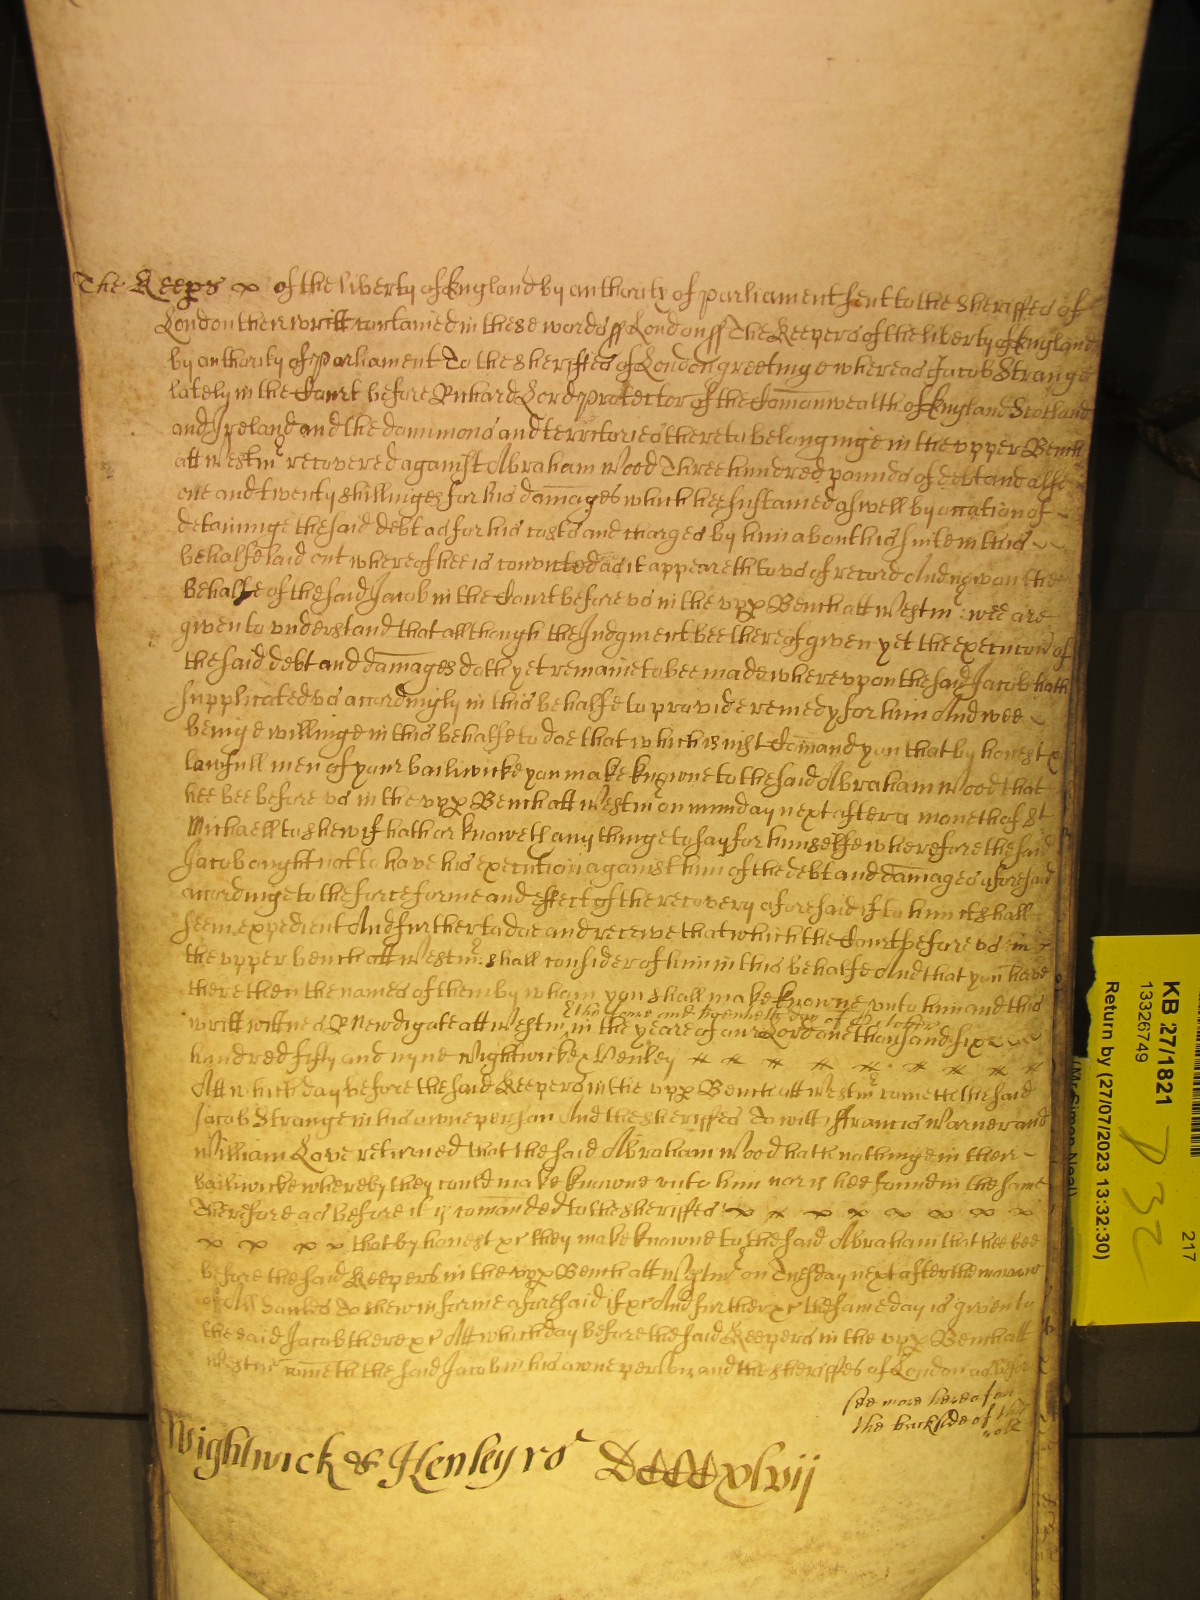 The Keeps of the liberty of England by authority of parliament sent to the Sheriffes of
London their writt contained in these words ss London ss The Keepers of the liberty of England
by authority of Parliament To the Sheriffes of London greetinge whereas Jacob Strange
lately in the Court before Richard Lord Protector of the Comonwealth of England Scotland
and Ireland and the dominions and territories thereto belonginge in the vpper Bench
att Westmr recovered against Abraham Wood Three hundred pounds of debt and alsoe
one and twenty shillinges for his damages which hee sustained as well by occation of
detaininge the said debt as for his costs and charges by him about his suite in this
behalfe laid out whereof hee is convicted as it appeareth to vs of record And now on the
behalfe of the said Jacob in the Court before vs in the vpp Bench att Westmr wee are
given to vnderstand that allthough the Judgment bee thereof given yet the execucon of
the said debt and damages doth yet remaine to bee made wherevpon the said Jacob hath
supplicated vs accordingly in this behalfe to provide remedy for him And wee
beinge willinge in this behalfe to doe that which is iust Comand you that by honest &
lawfull men of your bailiwicke you make knowne to the said Abraham Wood that
hee bee before vs in the vpp Bench att Westmr on munday next after a moneth of St
Michaell to shew if hath or knoweth any thinge to say for himselfe wherefore the said
Jacob ought not to have his execution against him of the debt and damages aforesaid
accordinge to the force forme and effect of the recovery aforesaid if to him it shall
seem expedient And further to doe and receive that which the Court before vs in
the vpper bench att Westmr shall consider of him in this behalfe And that you have
there then the names of them by whom you shall make knowne vnto him and this
writt wittnes R Newdigate att Westmr the foure and twentieth day of October in the yeare of our Lord one thousand six
hundred fifty and nyne Wightwicke & Henley
Att which day before the said Keepers in the vpp Bench att Westmr cometh the said
Jacob Strange in his owne person And the sheriffes to witt ffrancis Warner and
William Love returned that the said Abraham Wood hath nothinge in their
bailiwicke whereby they could make knowne vnto him nor is hee found in the same
Therefore as before it is comanded to the sheriffes
that by honest &c they make knowne to the said Abraham that hee bee
before the said Keepers in the vpp Bench att Westmr on Tuesday next after the morrow
of All Soules to shew in forme aforesaid if &c And further &c the same day is given to
the said Jacob there &c Att which day before the said Keepers in the vpp Bench att
Westmr cometh the said Jacob in his owne person and the sheriffes of London as before
see more hereof on
the backside of this
roll
Wightwick & Henley ro DCCCCxlvij
KB 27/1821
13326749
Return by (27/07/2023 13:32:30)
(Mr Simon Neal)
217
P 32